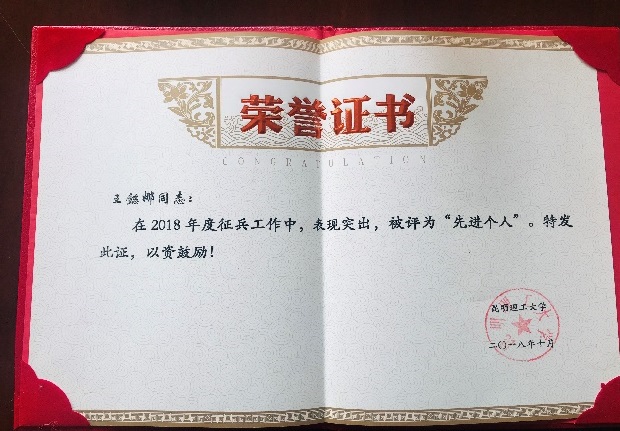 荣誉证书
CONGRATULATION
王鎴娜同志：
在2018年度征兵工作中，表现突出，被评为“先进个人”。特发
此证，以资鼓励！
昆明理工大学
二〇一八年十月